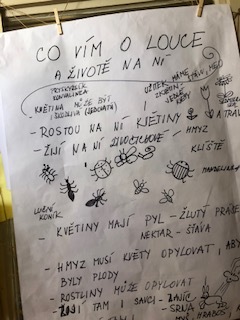 CO VÍM O LOUCE
A ŽIVOTĚ NA NÍ
PRYSKYŘNÍK
KONVALINKA
- KVĚTINA MŮŽE BÝT
I ŠKODLIVÁ (JEDOVATÁ)
UŽITEK MÁME
MED
- ROSTOU NA NÍ KVĚTINY
A TRÁVA
- ŽIJÍ NA NÍ ŽIVOČICHOVÉ / HMYZ
KLÍŠTĚ
MANDELINKA
LUČNÍ
KONÍK
- KVĚTINY MAJÍ PYL - ŽLUTÝ PRÁŠEK
NEKTAR - ŠŤÁVA
- HMYZ MUSÍ KVĚTY OPYLOVAT, ABY
BYLY PLODY
- ROSTLINY MŮŽE OPYLOVAT
- ŽIJÍ TAM I SAVCI - ZAJÍC
SRNA
MYŠ, HRABOŠ